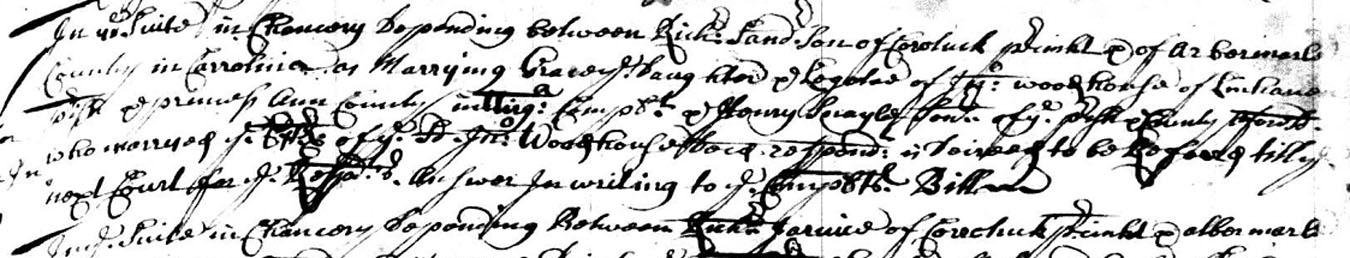 In ye Suite in Chancery Depending between Richd Sanderson of Coretuck and of Arbermarle
County in Carrolina as Marrying Gracey ye Daughter & Legatee of Jno: Woodhouse of Linhaven
pish & princess Ann County in Virga: Complt & Henry Snayle Senr of ye psh & County aforesd
who marryed ye of ye sd Jno: Woodhouse decd respondt is to be Referred till ye
next Court for ye Respdts Answer In writing to ye Complts Bill
In ye Suite in Chancery Depending Between Jarvice of Coretuck & albermarle